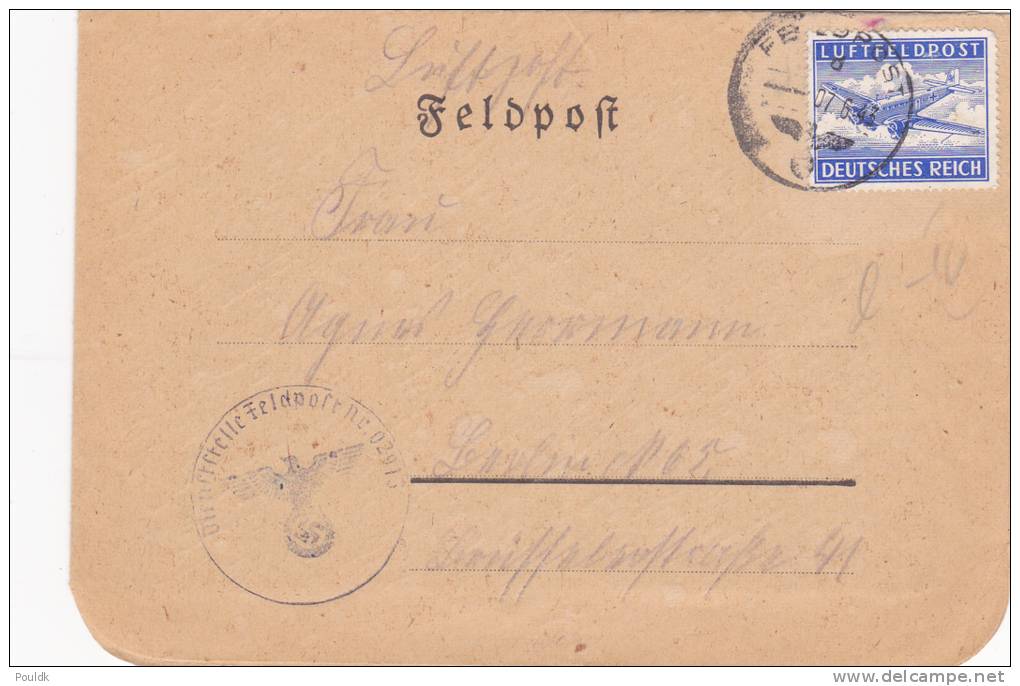 Luftpost
Feldpost
FELDPOST
07.6.43
LUFTFELDPOST
DEUTSCHES REICH
Frau
Agnes Herrmann
Berlin N 65
Brüsselerstraße 41
Dienststelle Feldpostnr. 02915
Pouldk
www.delcampe.net